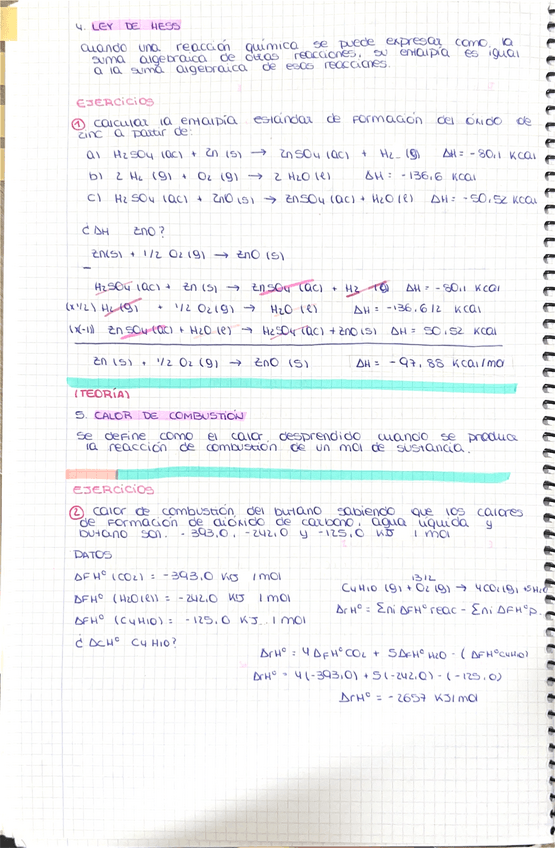 4. LEY DE HESS
cuando una reacción química se puede expresar como la
suma algebraica de otras reacciones, su entalpía es igual
a la suma algebraica de esas reacciones.
EJERCICIOS
① calcular la entalpía estándar de formación del óxido de
zinc a partir de:
a) H2SO4 (ac) + Zn (s) → ZnSO4 (ac) + H2 (g) ΔH = -80,1 Kcal
b) 2 H2 (g) + O2 (g) → 2 H2O (l) ΔH = -136,6 Kcal
c) H2SO4 (ac) + ZnO (s) → ZnSO4 (ac) + H2O (l) ΔH = -50,52 Kcal
¿ΔH ZnO?
Zn(s) + 1/2 O2 (g) → ZnO (s)
H2SO4 (ac) + Zn (s) → ZnSO4 (ac) + H2 (g) ΔH = -80,1 Kcal
(x1/2) H2 (g) + 1/2 O2 (g) → H2O (l) ΔH = -136,6/2 Kcal
(x(-1)) ZnSO4 (ac) + H2O (l) → H2SO4 (ac) + ZnO (s) ΔH = 50,52 Kcal
Zn (s) + 1/2 O2 (g) → ZnO (s) ΔH = -97,88 Kcal/mol
(TEORÍA)
5. CALOR DE COMBUSTIÓN
se define como el calor desprendido cuando se produce
la reacción de combustión de un mol de sustancia.
EJERCICIOS
② calor de combustión del butano sabiendo que los calores
de formación de dióxido de carbono, agua líquida y
butano son: -393,0, -242,0 y -125,0 KJ / mol
DATOS
ΔFHº (CO2) = -393,0 KJ / mol
C4H10 (g) + 13/2 O2 (g) → 4CO2 (g) + 5H2O
ΔFHº (H2O(l)) = -242,0 KJ / mol
ΔrHº = Σni ΔFHº reac - Σni ΔFHº p.
ΔFHº (C4H10) = -125,0 KJ / mol
¿ΔCHº C4H10?
ΔrHº = 4ΔFHº CO2 + 5ΔFHº H2O - (ΔFHº C4H10)
ΔrHº = 4(-393,0) + 5(-242,0) - (-125,0)
ΔrHº = -2657 KJ/mol